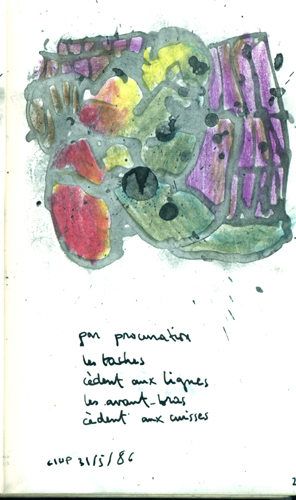 par procuration
les taches
cèdent aux lignes
les avant-bras
cèdent aux cuisses
CIUP 31/5/86
2